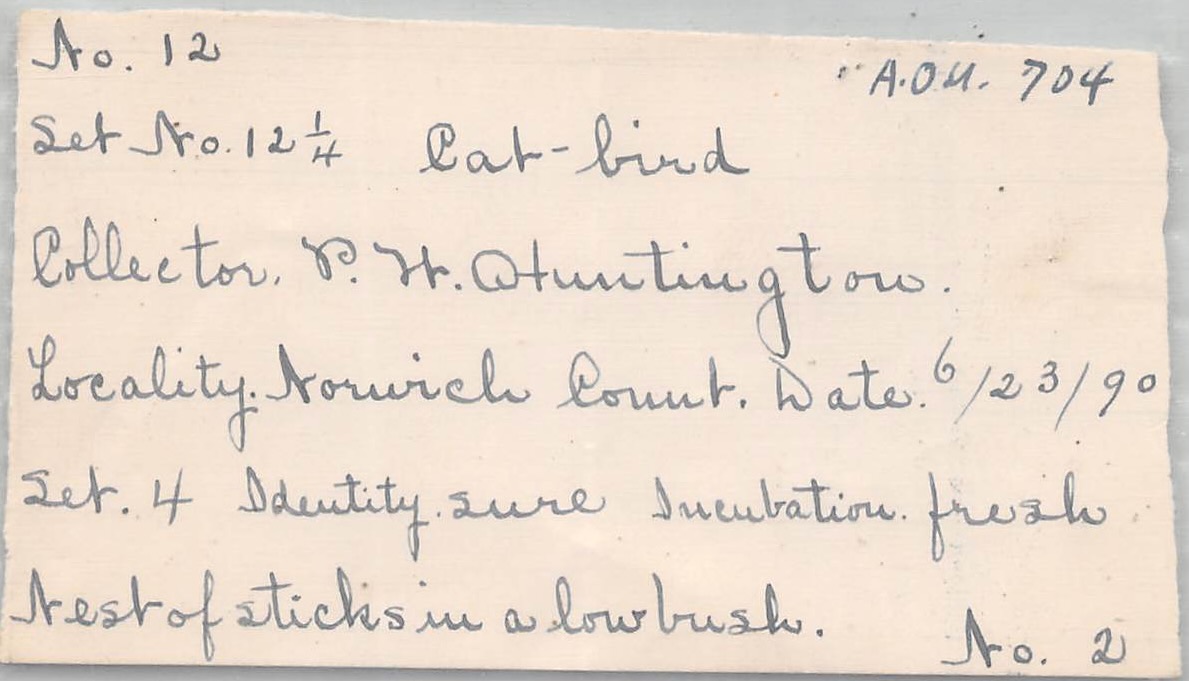 No. 12
A.O.U. 704
Set No. 12 1/4 Cat-bird
Collector. P. H. Huntington.
Locality. Norwich Connt. Date. 6/23/90
Set. 4 Identity. sure Incubation. fresh
Nest of sticks in a low bush.
No. 2